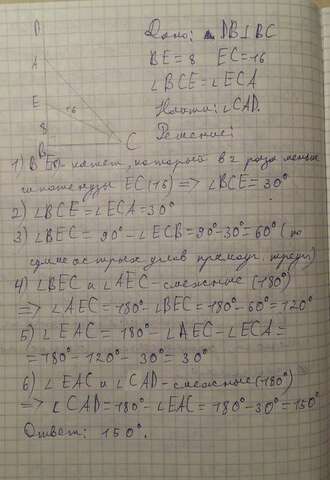 D
A
E
16
8
B
C
Дано: DB⊥BC
BE=8 EC=16
∠BCE=∠ECA
Найти: ∠CAD.
Решение:
1) BE - катет, который в 2 раза меньше
гипотенузы EC(16) => ∠BCE=30°
2) ∠BCE=∠ECA=30°
3) ∠BEC= 90°-∠ECB=90°-30°=60° (по
сумме острых углов прямоуг. треуг.)
4) ∠BEC и ∠AEC - смежные (180°)
=> ∠AEC=180°-∠BEC=180°-60°=120°
5) ∠EAC = 180°-∠AEC-∠ECA=
=180°-120°-30°=30°
6) ∠EAC и ∠CAD - смежные(180°)
=> ∠CAD=180°-∠EAC=180°-30°=150°
Ответ: 150°.